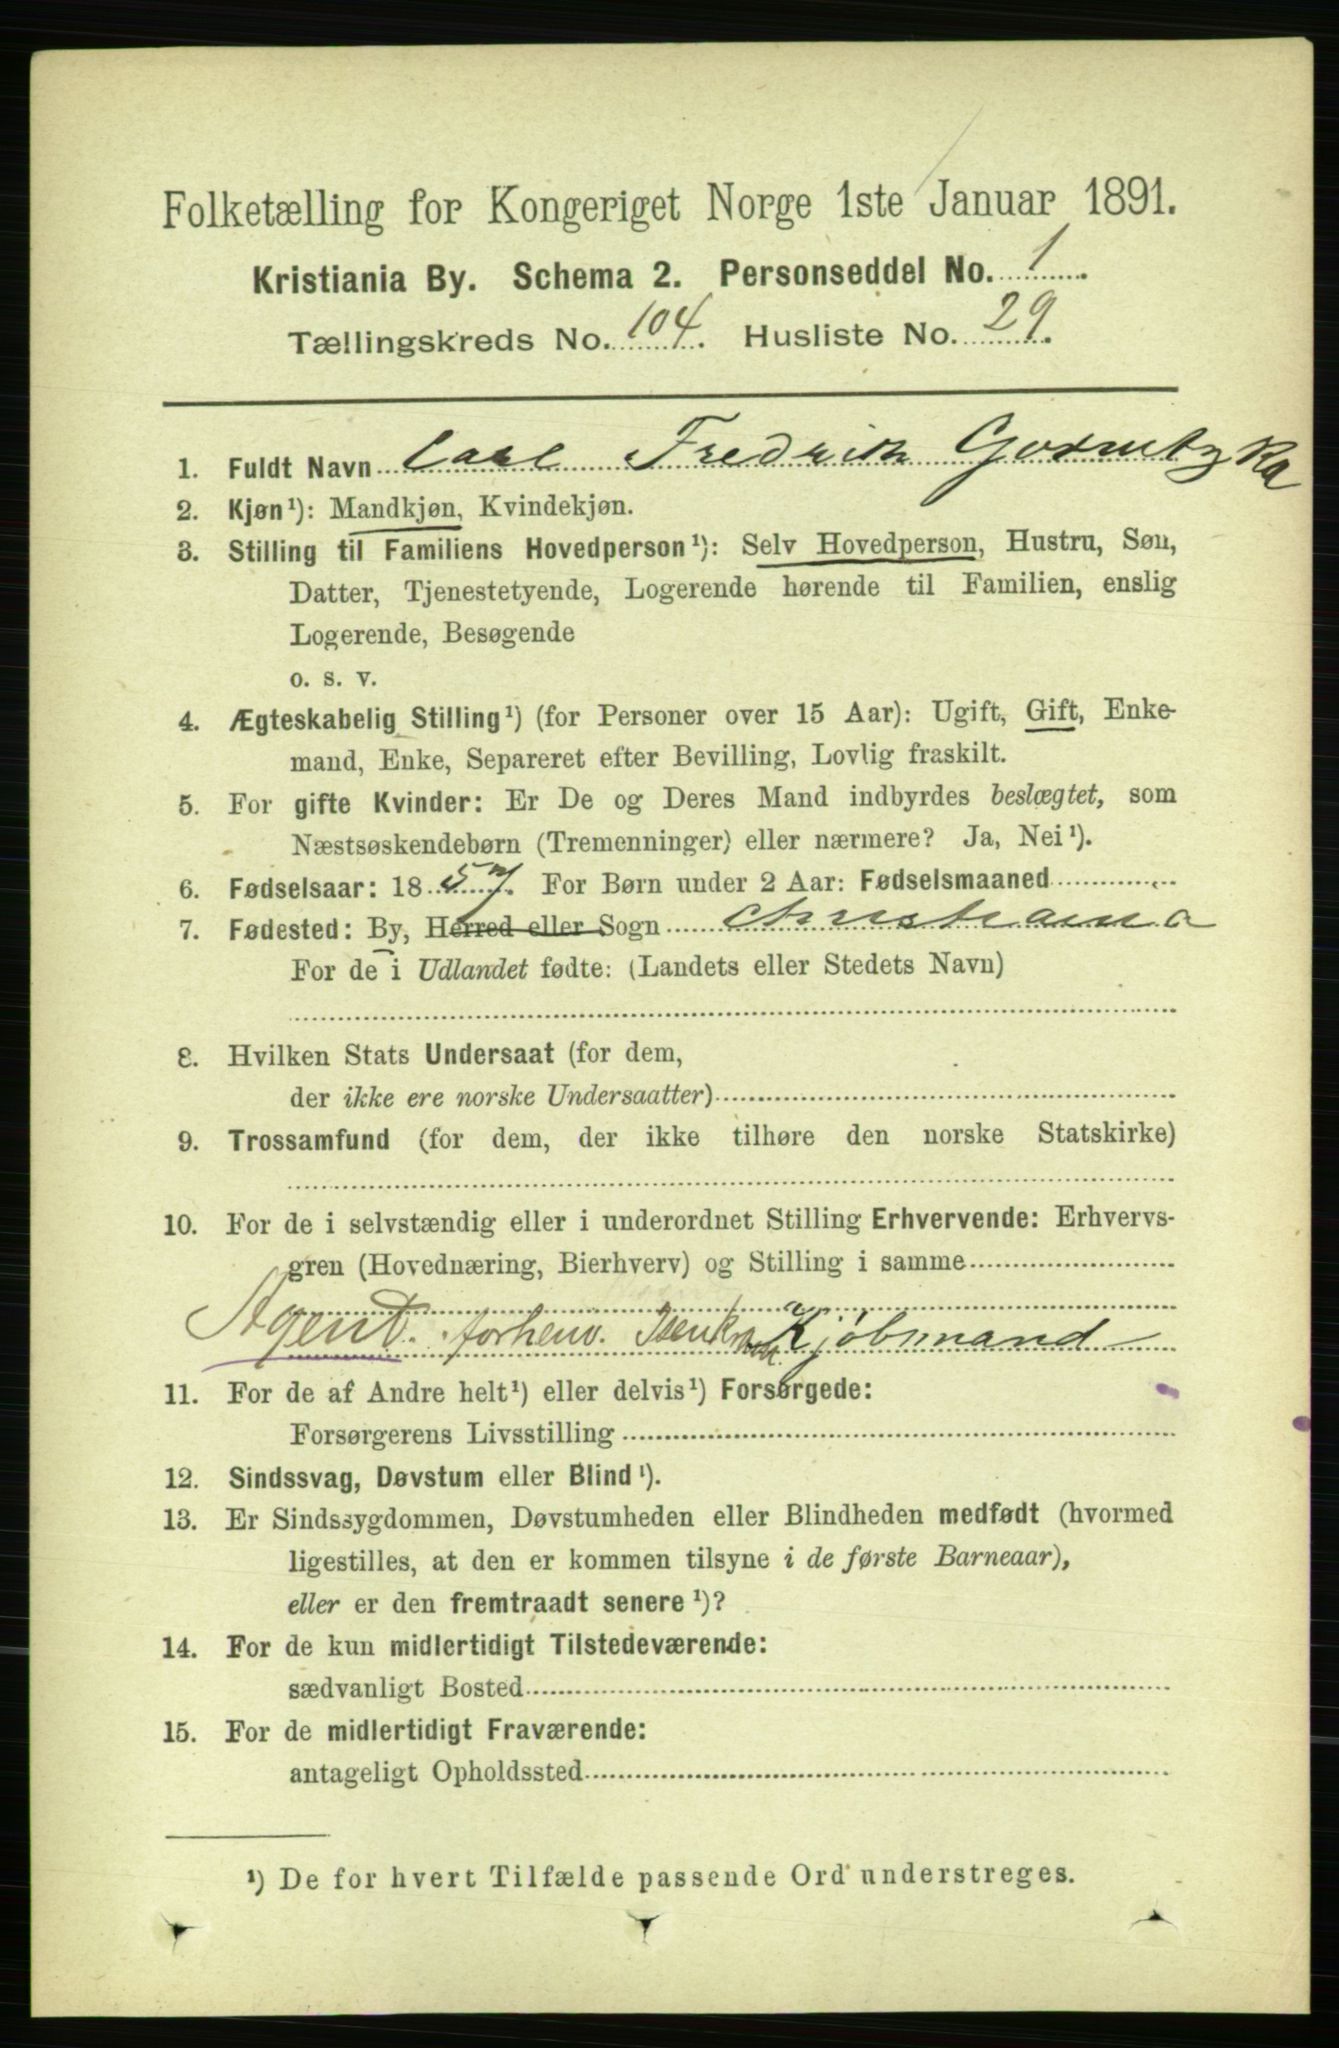 Folketælling for Kongeriget Norge 1ste Januar 1891.
Kristiania By. Schema 2. Personseddel No. 1.
Tællingskreds No. 104. Husliste No. 29.
1. Fuldt Navn Carl Fredrik
2. Kjøn¹): Mandkjøn, Kvindekjøn.
3. Stilling til Familiens Hovedperson¹): Selv Hovedperson, Hustru, Søn,
Datter, Tjenestetyende, Logerende hørende til Familien, enslig
Logerende, Besøgende
o. s. v.
4. Ægteskabelig Stilling¹) (for Personer over 15 Aar): Ugift, Gift, Enke-
mand, Enke, Separeret efter Bevilling, Lovlig fraskilt.
5. For gifte Kvinder: Er De og Deres Mand indbyrdes beslægtet, som
Næstsøskendebørn (Tremenninger) eller nærmere? Ja, Nei¹).
6. Fødselsaar: 1857. For Børn under 2 Aar: Fødselsmaaned
7. Fødested: By, Herred eller Sogn Christiania
For de i Udlandet fødte: (Landets eller Stedets Navn)
8. Hvilken Stats Undersaat (for dem,
der ikke ere norske Undersaatter)
9. Trossamfund (for dem, der ikke tilhøre den norske Statskirke)
10. For de i selvstændig eller i underordnet Stilling Erhvervende: Erhvervs-
gren (Hovednæring, Bierhverv) og Stilling i samme
Agent. forhenv. Kjøbmand
11. For de af Andre helt¹) eller delvis¹) Forsørgede:
Forsørgerens Livsstilling
12. Sindssvag, Døvstum eller Blind¹).
13. Er Sindssygdommen, Døvstumheden eller Blindheden medfødt (hvormed
ligestilles, at den er kommen tilsyne i de første Barneaar),
eller er den fremtraadt senere¹)?
14. For de kun midlertidigt Tilstedeværende:
sædvanligt Bosted
15. For de midlertidigt Fraværende:
antageligt Opholdssted
¹) De for hvert Tilfælde passende Ord understreges.